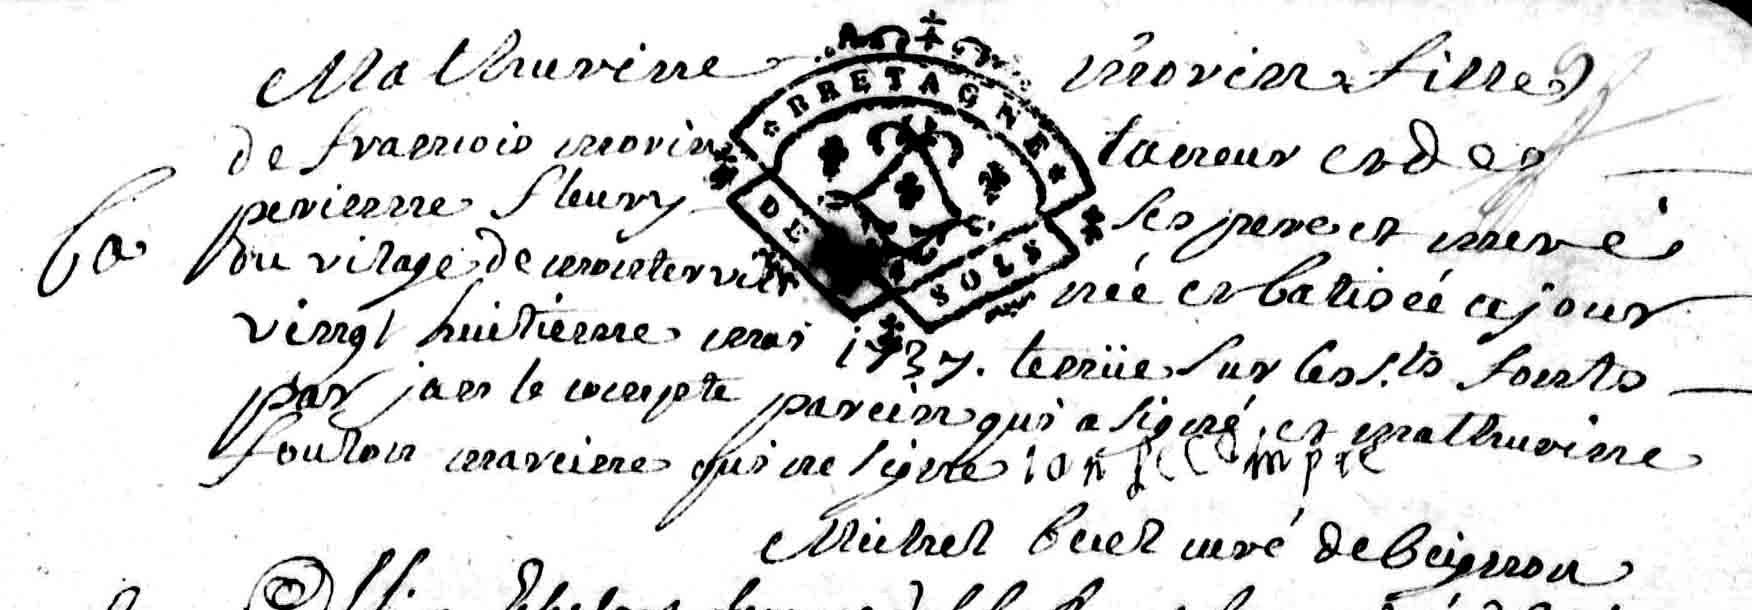 Mathurinne morinn fille
de francois morin taneur et de
perienne fleury ses pere et mere
ba
du vilage de monterville née et batisée ce jour
vingt huitiéme mai 1737. tenüe sur les s.ts fonts
par jan le compte parein qui a signé, et mathurinne
foulon mareine qui ne signe ian le Compte
Michel buet curé de beignon
BRETAGNE
DE SOLS